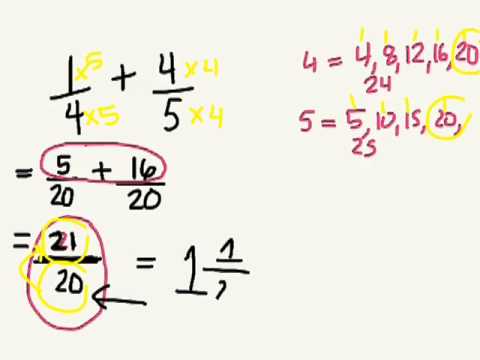 1 ×5 + 4 ×4
4 ×5   5 ×4
= 5 + 16
20   20
= 21
20
= 1 1
4 = 4, 8, 12, 16, 20
24
5 = 5, 10, 15, 20,
25